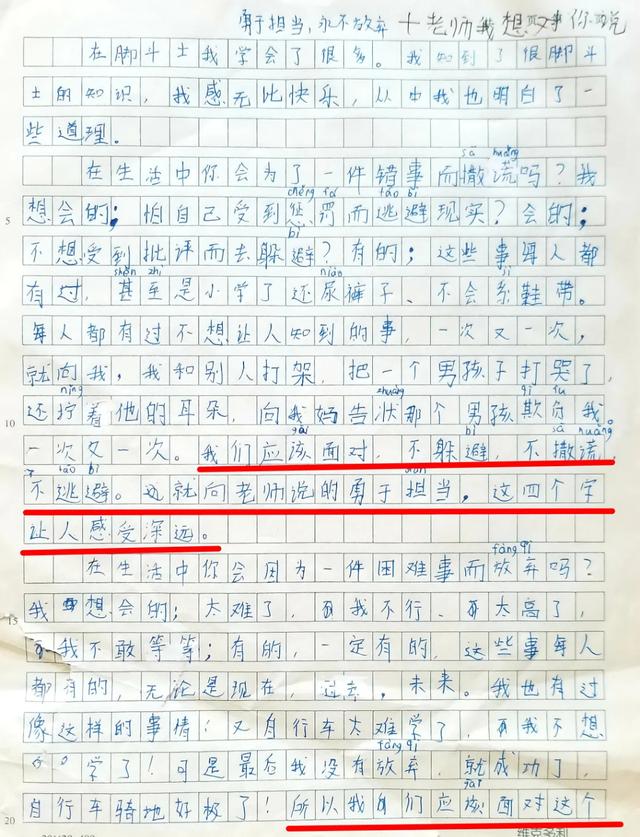 勇于担当,永不放弃 十老师我想对你说
在脚斗士我学会了很多。我知到了很脚斗
士的知识,我感无比快乐,从中我也明白了一
些道理。
sā huǎng
在生活中你会为了一件错事而撒谎吗?我
chéng fá táo bì
想会的;怕自己受到惩罚而逃避现实?会的;
5
bì
不想受到批评而去躲避?有的;这些事每人都
shèn zhì niào jì
有过,甚至是小学了还尿裤子、不会系鞋带。
每人都有过不想让人知到的事,一次又一次,
就向我,我和别人打架,把一个男孩子打哭了,
níng zhuàng qī fu
还拧着他的耳朵,向我妈告状那个男孩欺负我。
10
gāi sā huǎng
一次又一次。我们应该面对,不躲避,不撒谎,
táo bì dān
不逃避。这就向老师说的勇于担当。这四个字
让人感受深远。
fàng qì
在生活中你会因为一件困难事而放弃吗?
我想会的;太难了,我不行、太高了,
15
我不敢等等;有的,一定有的,这些事每人
都有的,无论是现在,过去,未来。我也有过
像这样的事情!又自行车太难学了,我不想
fàng qì
学了!可是最后我没有放弃,就成功了,
gāi
自行车骑地好极了!所以我们应该面对这个
20
维克多利